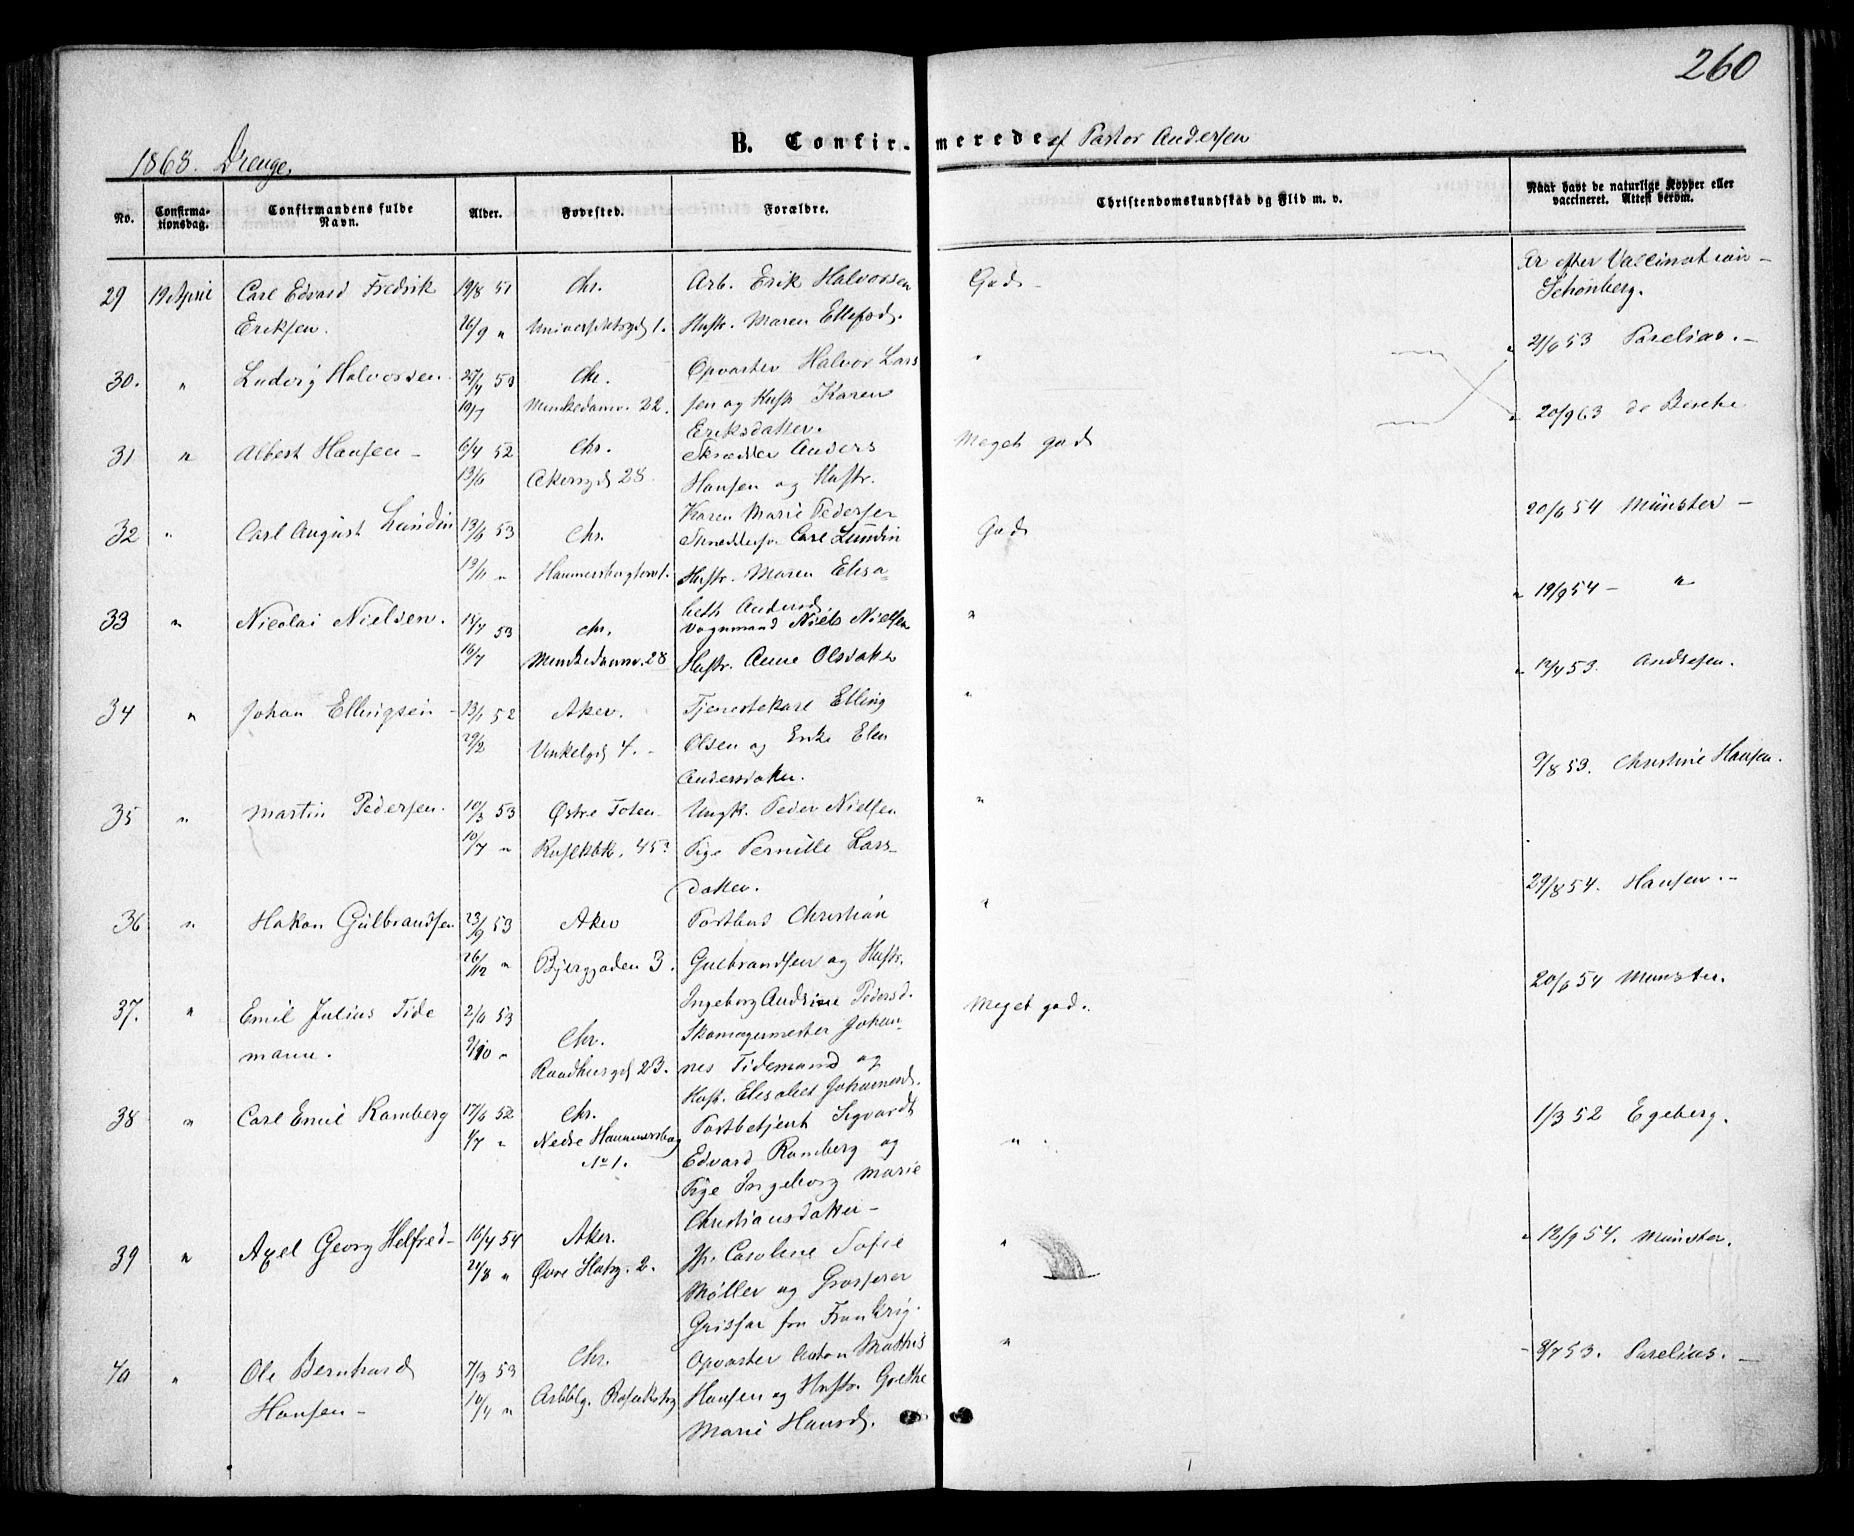 260
B. Confirmerede af Pastor Andersen
1868. Drenge.
No.
Confirmationsdag.
Confirmandens fulde Navn.
Alder.
Fødested.
Forældre.
Christendomskundskab og Flid m. v.
Naar havt de naturlige Kopper eller vaccineret. Attest derom.
29 19 April Carl Edvard Fredrik 19/8 51 Chr. Arb. Erik Halvorsen God - Ar efter Vaccination -
Schønberg.
Eriksen. 26/9 " Universitetsgd 1. Hustr. Maren Ellefsd.
21/6 53 Parelius. -
30. " Ludvig Halvorsen 53 Chr. Opvarter Halvor Lars "
19/7 Munkedamv. 22. sen og Hustr Karen
20/9 63 de Besche
Eriksdatter.
31 " Albert Hansen - 6/4 52 Chr. Skrædder Anders Meget god
13/6 Akersgd 28. Hansen og Hustr.
Karen Marie Pedersen
20/6 54 Münster -
32 " Carl August Lundin 13/6 53 Chr. Skræddersv. Carl Lundin God
13/11 " Hammersborgtorv 1. Hustr. Maren Elisa-
beth Andersd
" 19/9 54 - "
33 " Nicolai Nielsen. 15/7 53 Chr. Vognmand Niels Nielsen "
16/7 Munkedamv. 28 Hustr. Anne Olsdatter
" 12/4 53. Andresen.
34 " Johan Ellingsen - 13/1 52 Aker. Tjenestekarl Elling "
29/2 Vinkelgd 4. - Olsen og Enke Elen
Andersdatter.
9/8 53. Christine Hansen.
35 " Martin Pedersen. 10/3 53 Østre Toten Ungk. Peder Nielsen "
10/7 " 45 Pige Pernille Lars-
datter.
29/8 54. Hansen. -
36 " Hakon Gulbrandsen 23/9 53 Aker Postbud Christian "
26/12 " Bjerggaden 3. Gulbrandsen og Hustr.
Ingeborg Andrine Pedersd.
20/6 54 Munster.
37. " Emil Julius Tide 2/6 53 Chr. Skomagermester Johan- Meget god.
mann. 9/10 " Raadhusgd 23. nes Tidemand og
Hustr. Elisabet Johannesd.
38 " Carl Emil Ramberg 17/6 52 Chr. Postbetjent Sigvardt " 1/3 52 Egeberg.
1/7 " Nedre Hammersborg No 1. Edvard Ramberg og
Pige Ingeborg Marie
Christiansdatter -
39 " Axel Georg Helfred - 16/4 54 Aker. Jfr. Caroline Sofie " " 12/9 54. Münster.
24/8 " Øvre 2. Møller og Grosserer
Grisfar fra Frankrig.
40 " Ole Bernhard 7/3 53 Chr. Opvarter Anton Mathis " 9/7 53. Parelius. -
Hansen - 10/4 " Arbblg. Hansen og Hustr. Grethe
Marie Hansd.